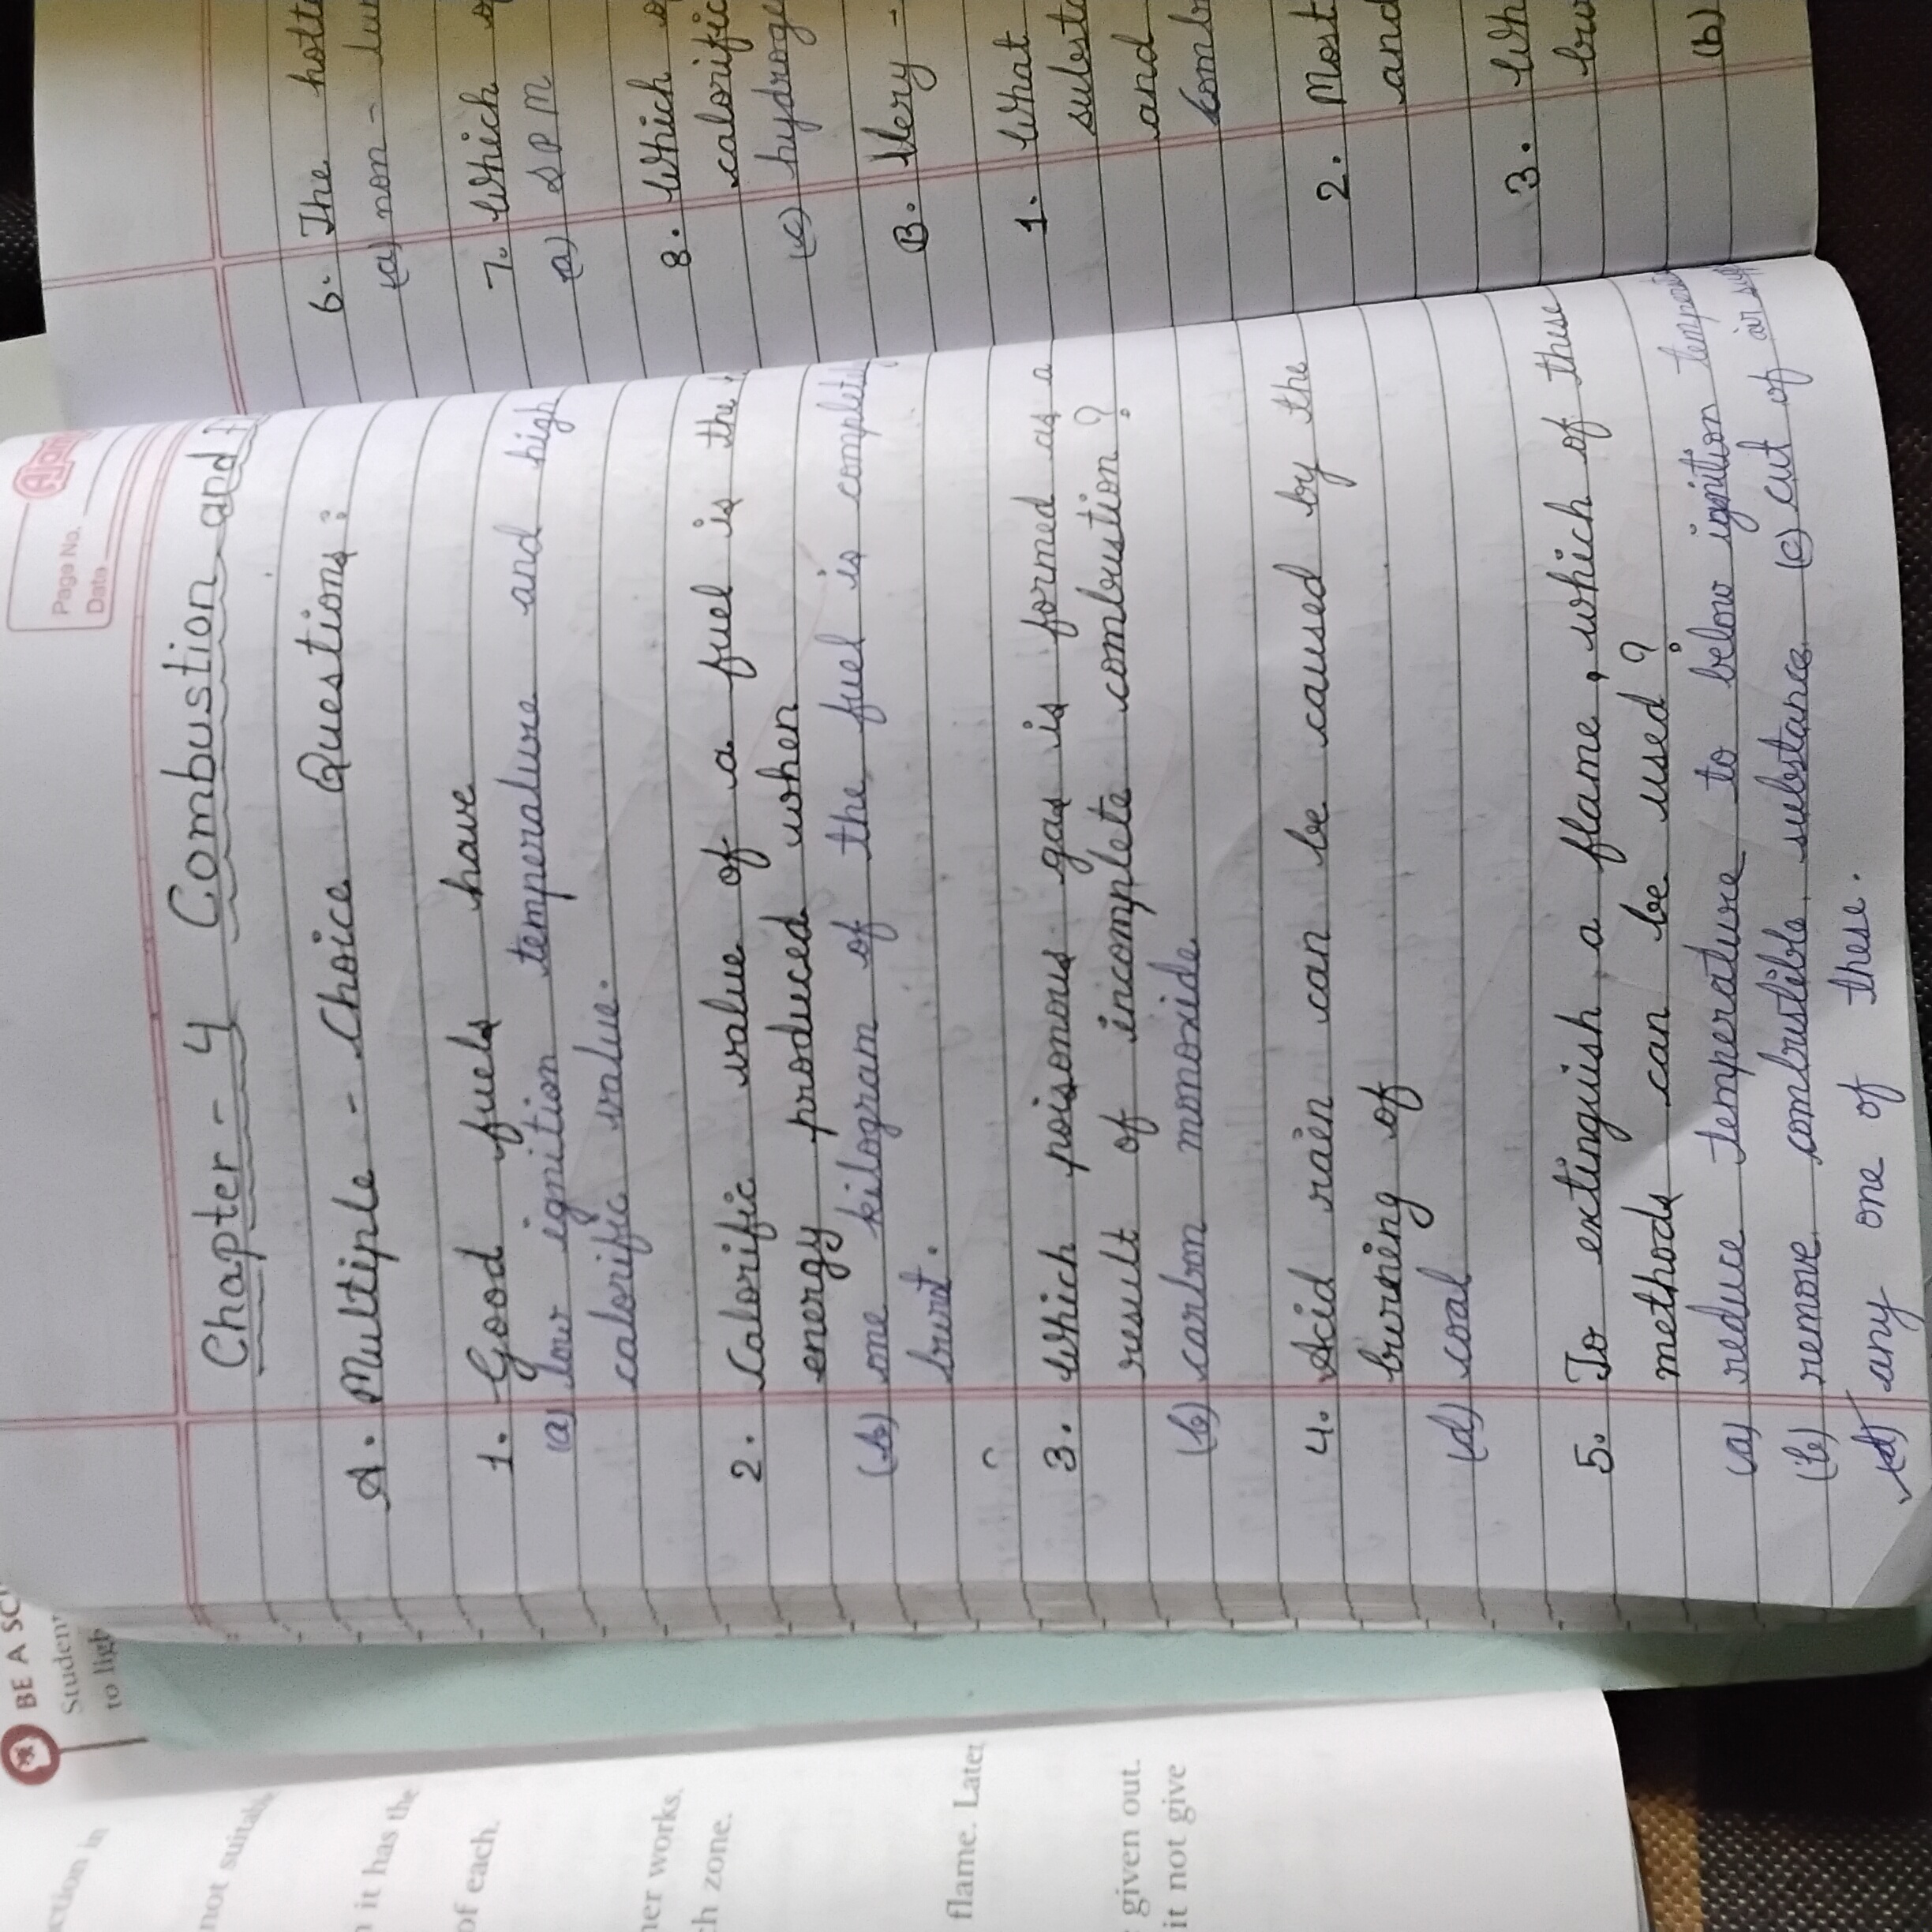 Page No.
Date
Chapter - 4 Combustion and
A. Multiple - Choice Questions :
1. Good fuels have
(a) low ignition temperature and high
calorific value.
2. Calorific value of a fuel is the
energy produced when
(b) one kilogram of the fuel is completely
burnt.
3. Which poisonous gas is formed as a
result of incomplete combustion ?
(b) carbon monoxide
4. Acid rain can be caused by the
burning of
(d) coal
5. To extinguish a flame, which of these
methods can be used ?
(a) reduce temperature to below ignition
(b) remove combustible substance (c) cut of air
(d) any one of these.
6. The
(a) non -
7. Which
(a) SPM
8. Which
calorific
(c)
B. Very -
1. What
and
2. Most
and
3.
(b)
BE A
to
not
it has the
of each.
works.
zone.
flame.
given out.
it not give